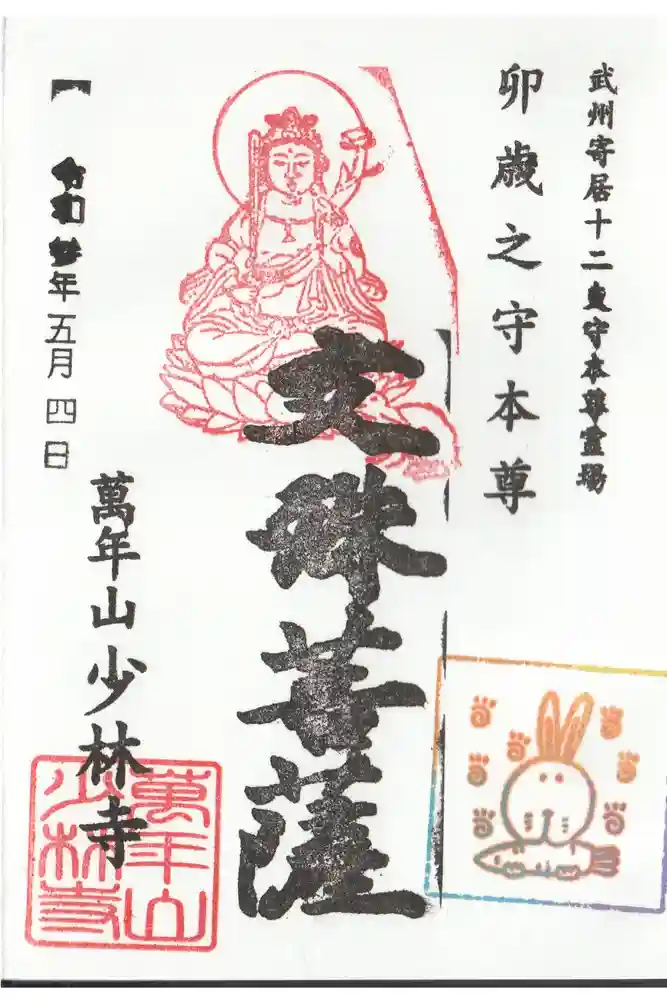 武州寄居十二支守本尊霊場
卯歳之守本尊
文殊菩薩
萬年山少林寺
令和年五月四日
萬年山
少林寺